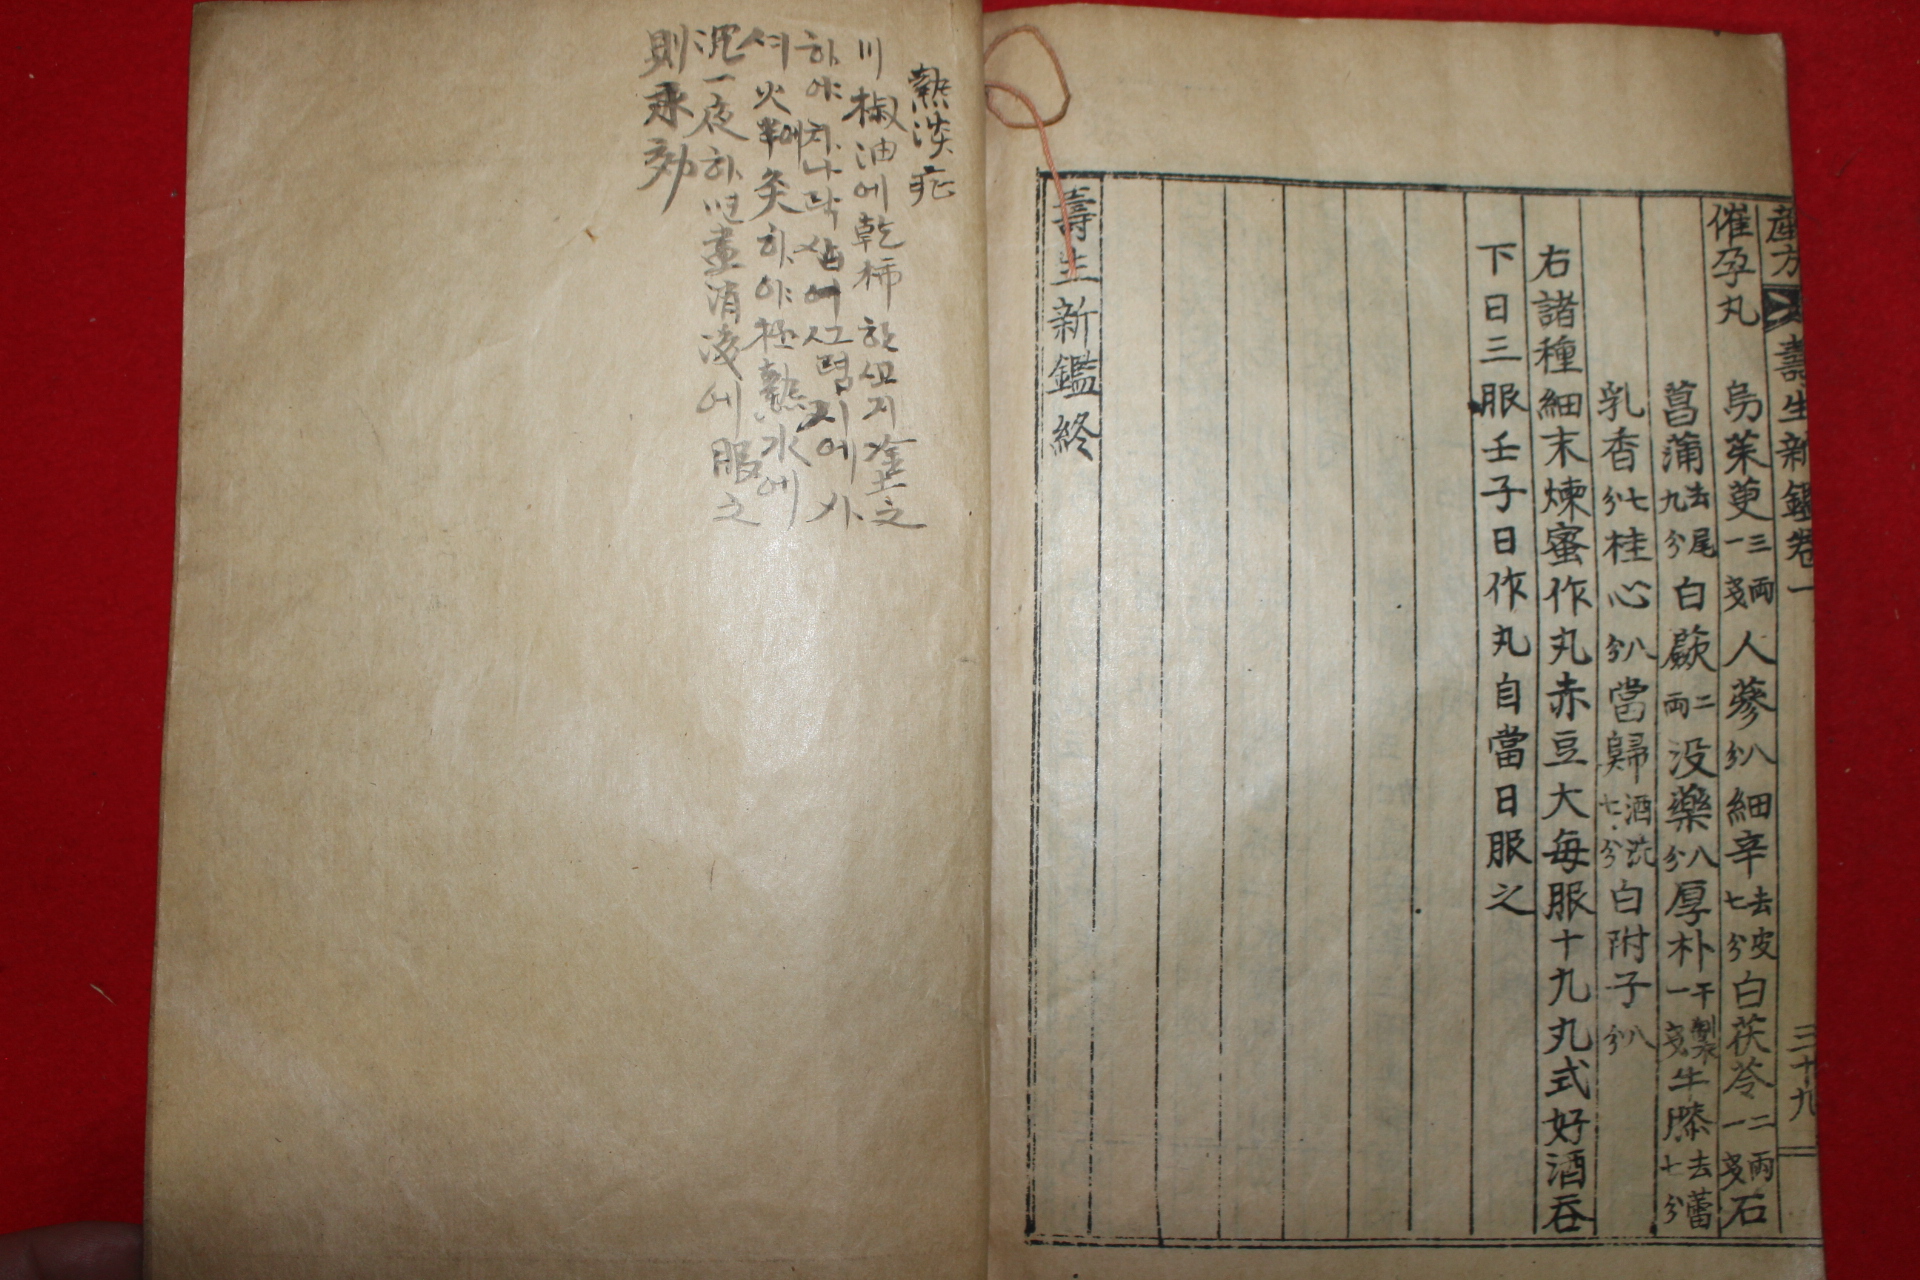 產方 壽生新鑑卷一 三十九
催孕丸 烏茱萸三兩一戔 人蔘八分 細辛去皮七分 白茯苓二兩一戔 石
菖蒲去尾九分 白蕨二兩 没藥八分 厚朴干製一戔 牛膝去蕾七分
乳香七分 桂心八分 當歸酒洗七分 白附子八分
右諸種細末煉蜜作丸赤豆大每服十九丸式好酒吞
下日三服壬子日作丸自當日服之
壽生新鑑終
熱淡症
川椒油에乾柿 지塗之
하야 지에 
셔火 灸하야極熱水에
沉一夜하 畫消 에服之
則永効